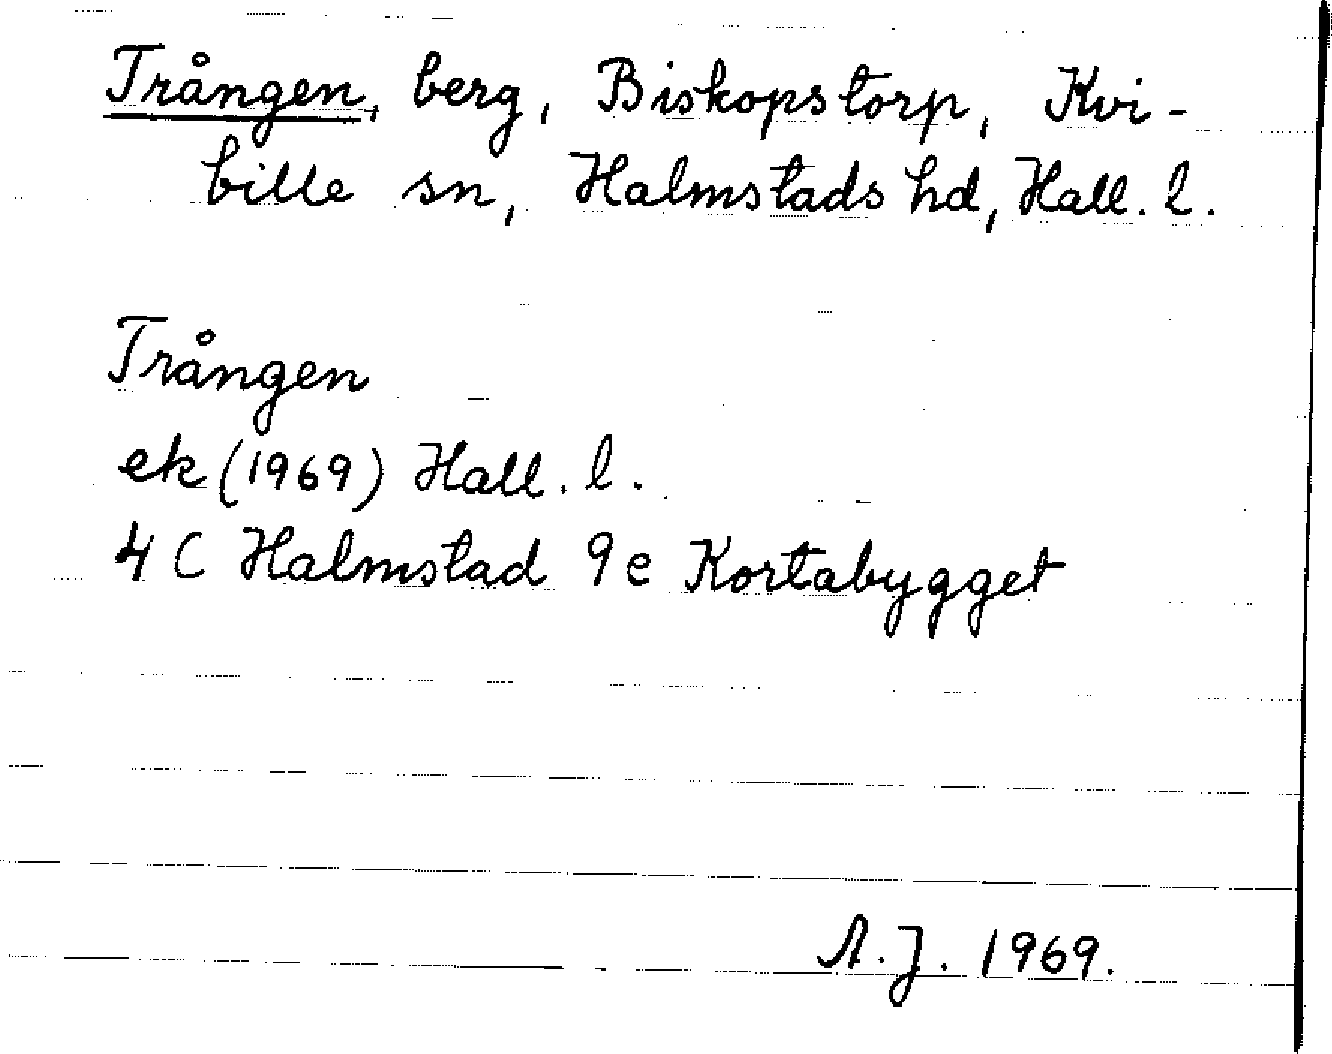 Trången, berg, Biskopstorp, Kvi-
bille sn, Halmstads hd, Hall. l.
Trången
ek (1969) Hall. l.
4 C Halmstad 9 e Kortabygget
A.J. 1969.